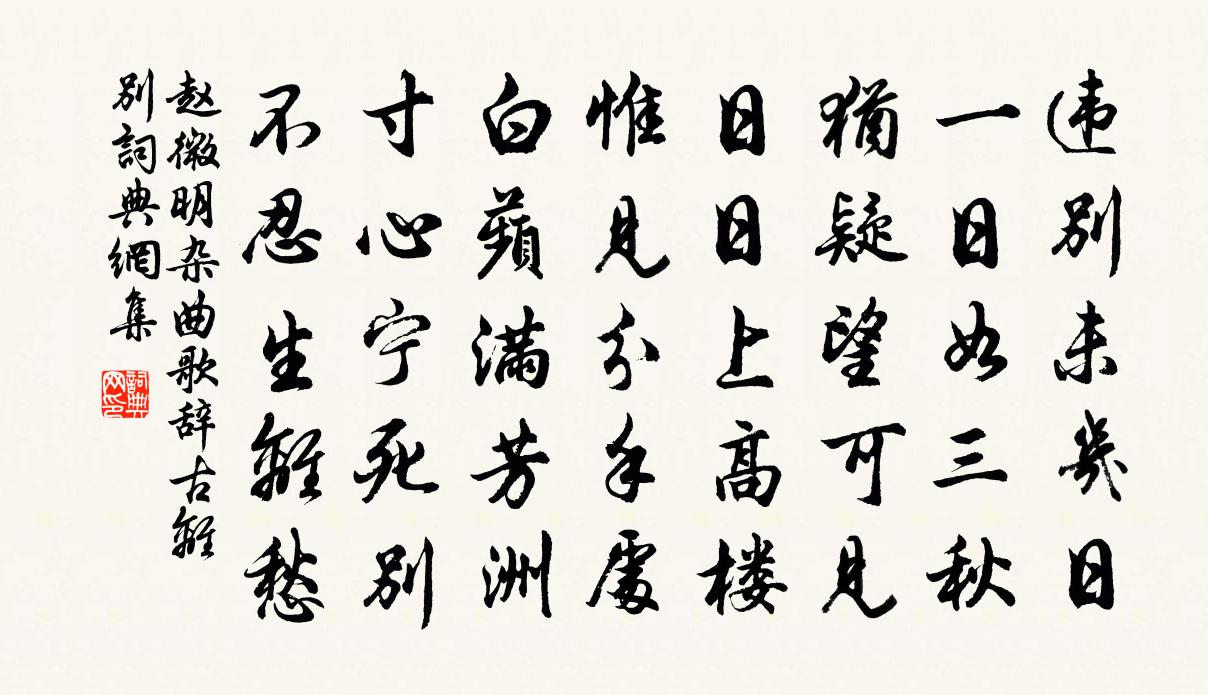 违别未幾日
一日如三秋
猶疑望可見
日日上高楼
惟見分手處
白蘋满芳洲
寸心宁死别
不忍生離愁
赵微明杂曲歌辞古離
别詞典網集
詞典网印